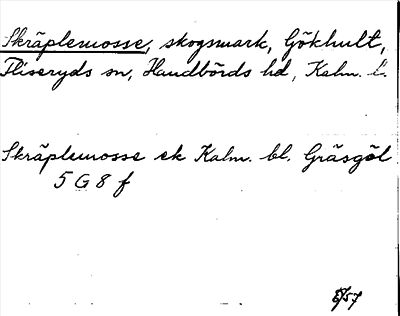 Skräplemosse, skogsmark, Gökhult,
Fliseryds sn, Handbörds hd, Kalm. l.
Skräplemosse ek Kalm. bl. Gräsgöl
5 G 8 f